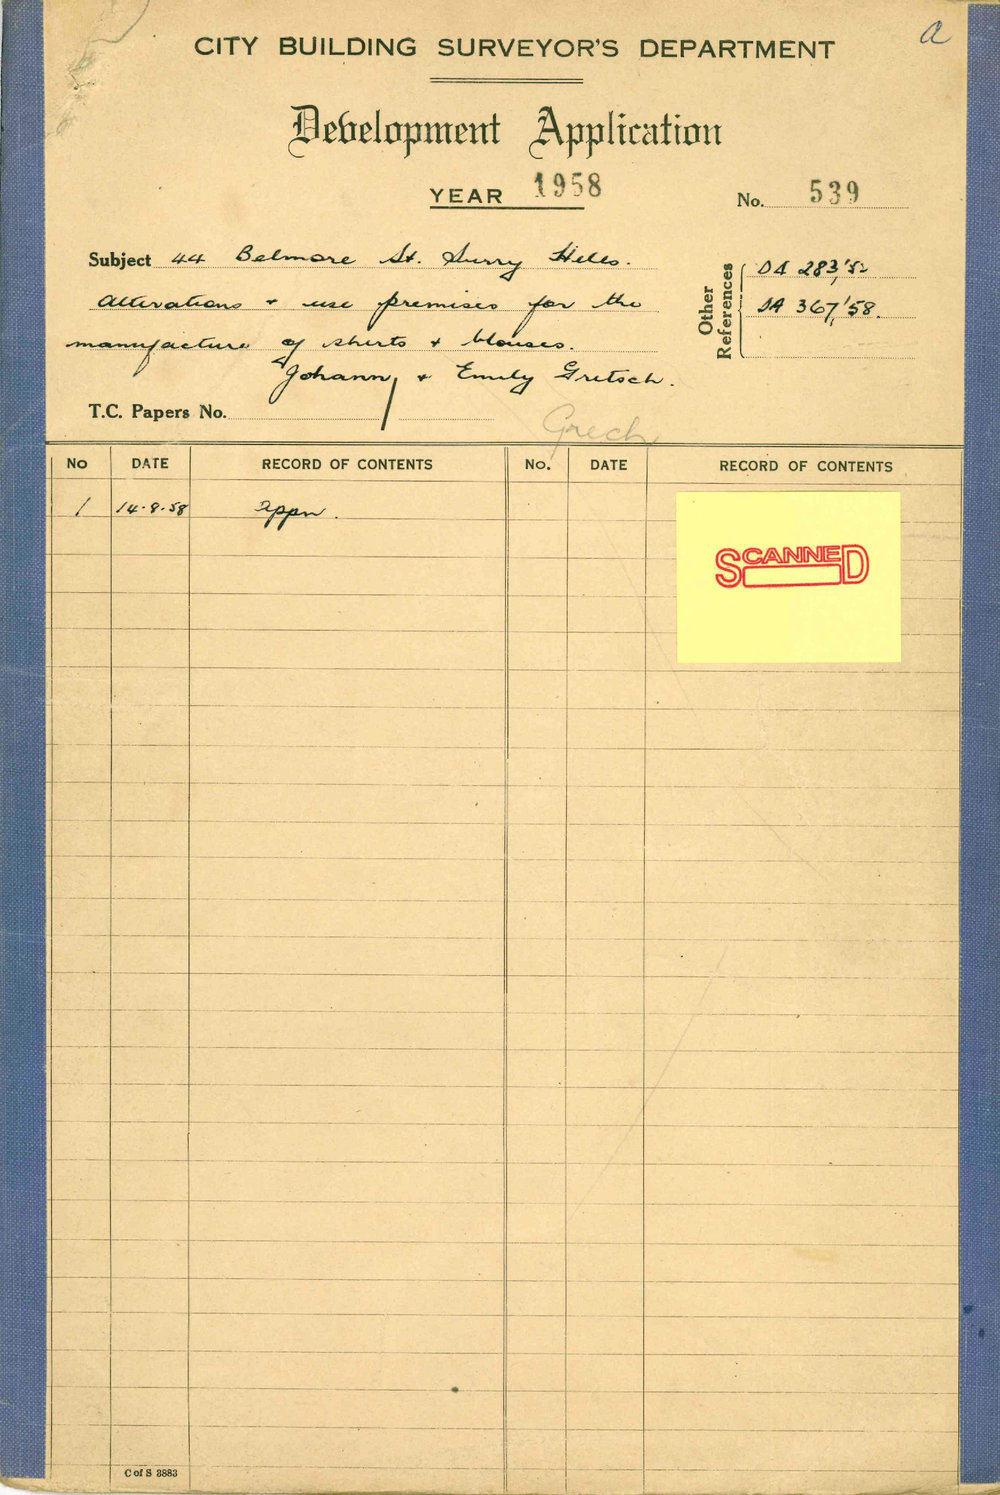 a
CITY BUILDING SURVEYOR'S DEPARTMENT
Development Application
YEAR 1958
No. 539
Subject 44 Belmore St. Surry Hills.
alterations + use premises for the
manufacture of shirts + blouses.
Johann + Emily Gretsch.
Grech
T.C. Papers No.
Other References
DA 283/52
DA 367/58.
No DATE RECORD OF CONTENTS No. DATE RECORD OF CONTENTS
1 14.8.58 appn.
SCANNED
C of S 3883